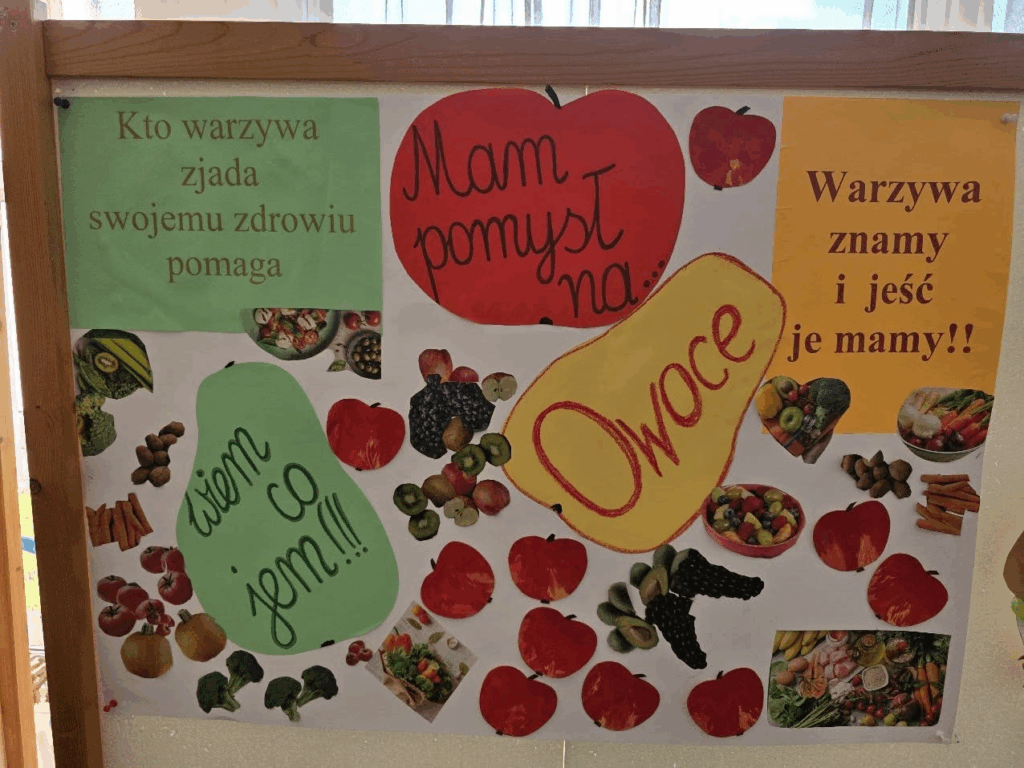 Kto warzywa
zjada
swojemu zdrowiu
pomaga
Mam
pomysł
na...
Warzywa
znamy
i jeść
je mamy!!
Owoce
wiem
co
jem!!!